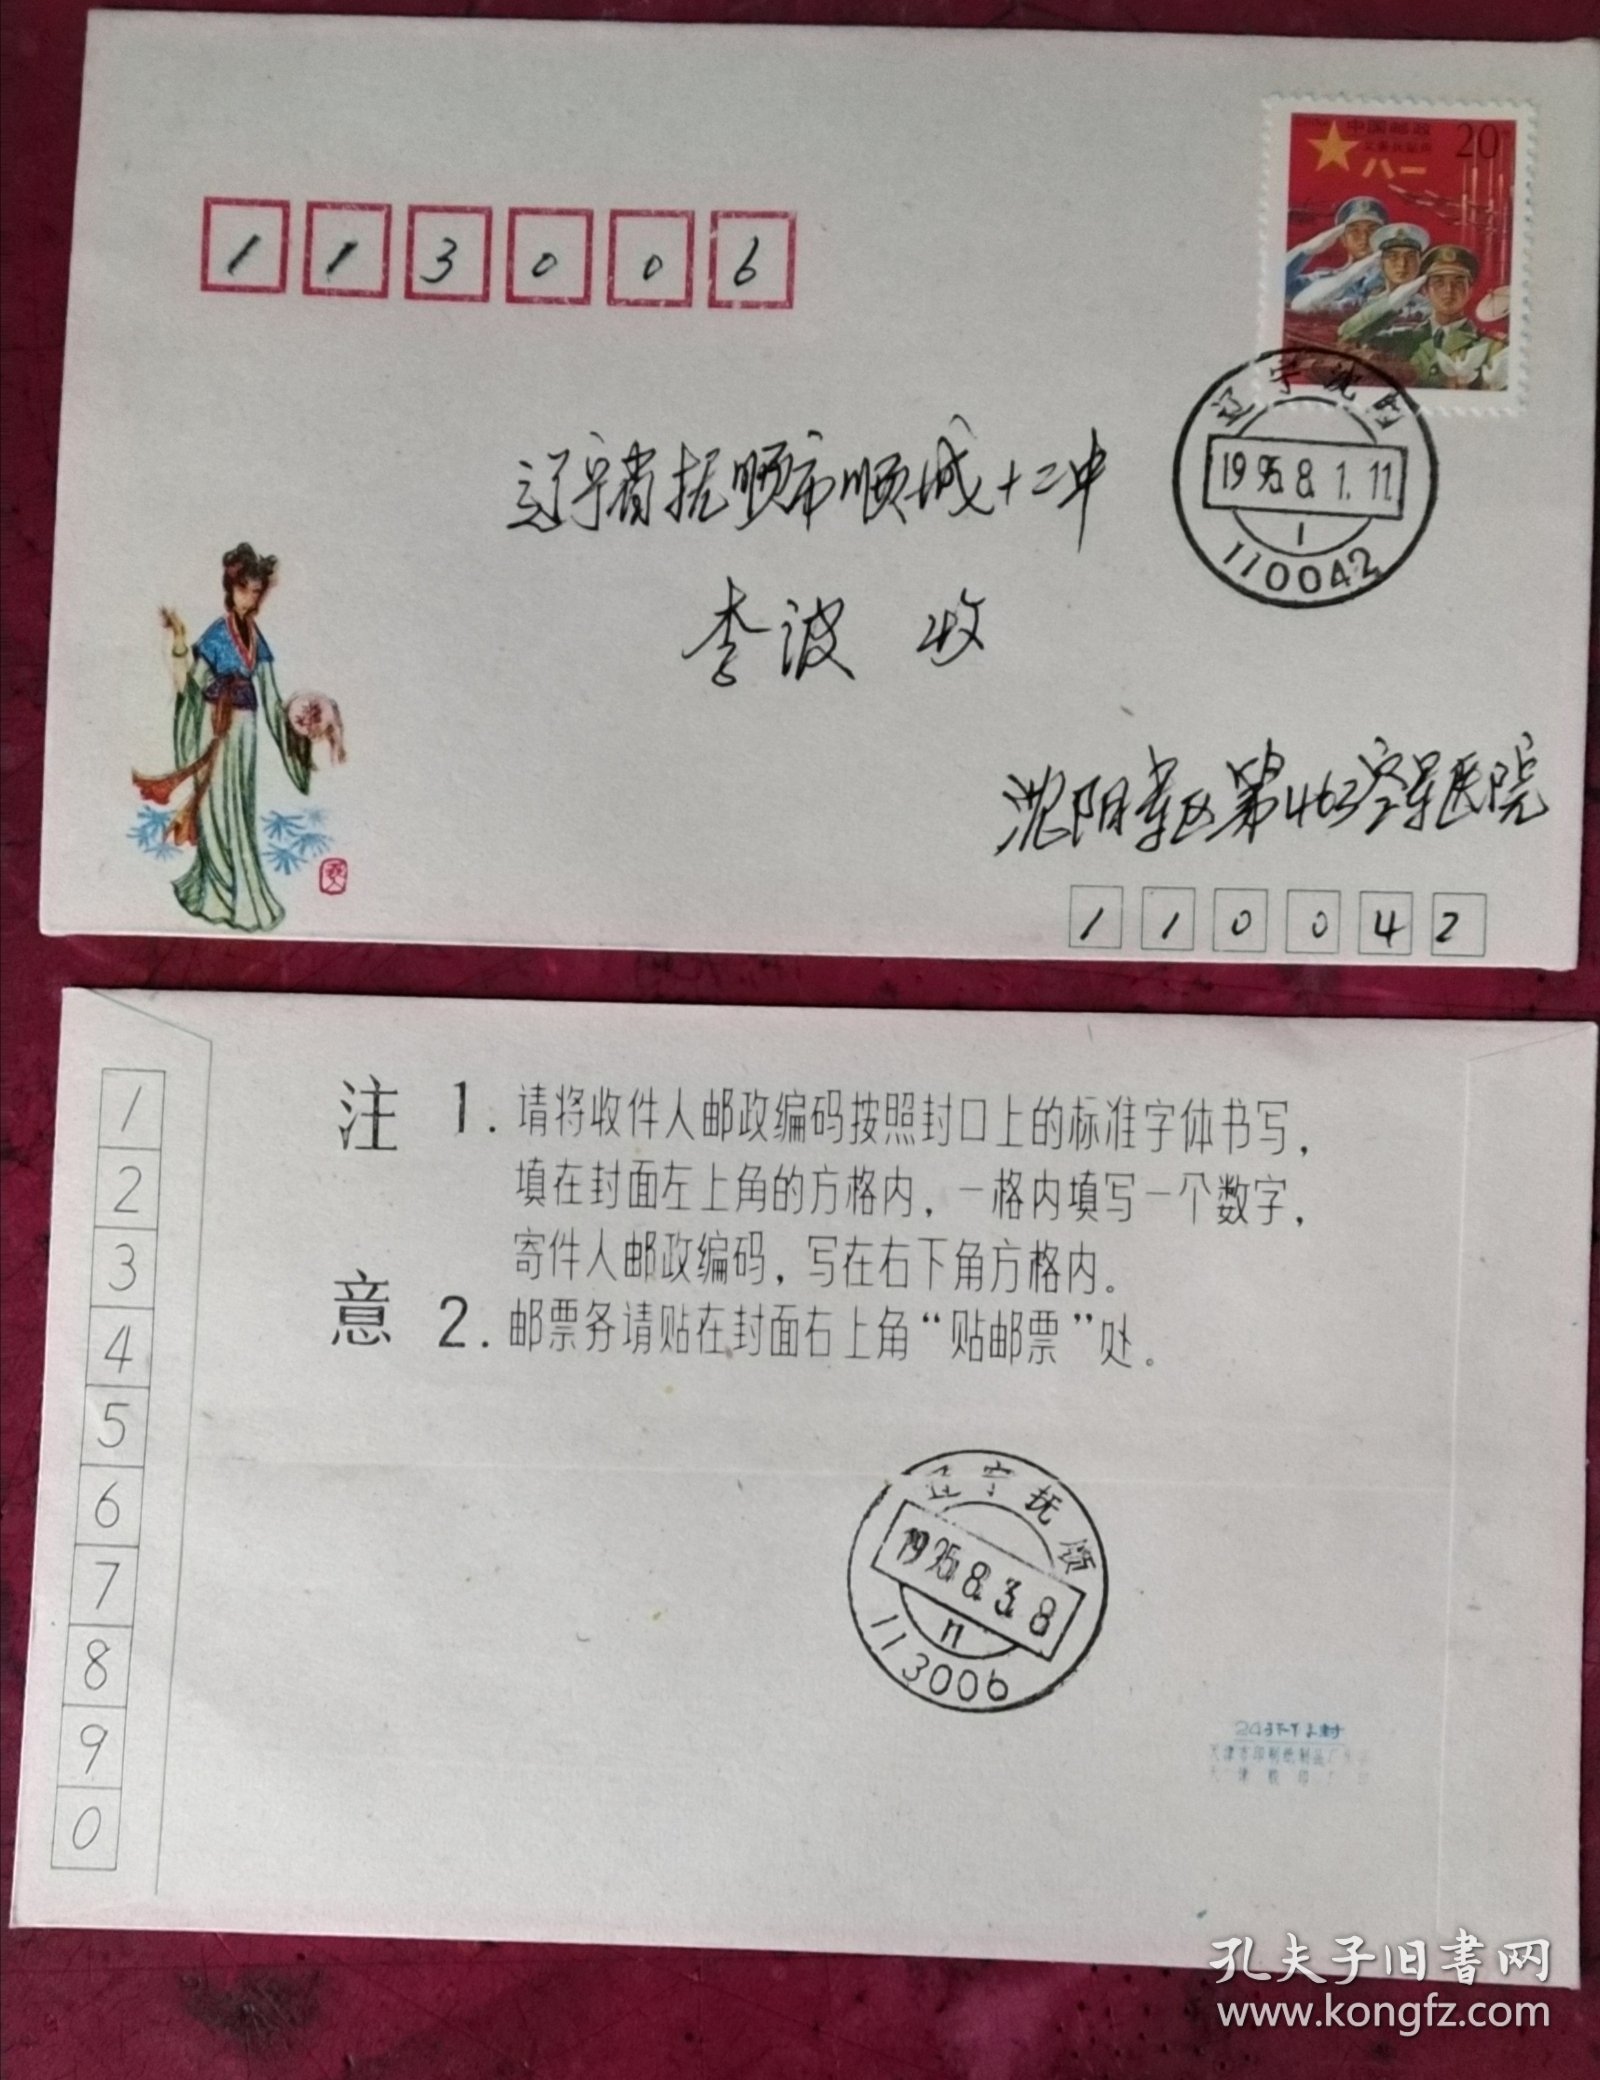 中国邮政
20
义务兵贴用
八一
113006
辽宁沈阳
1995.8.1.11
1
110042
辽宁省抚顺市顺城十二中
李波 收
沈阳军区第463空军医院
110042
注意
1.请将收件人邮政编码按照封口上的标准字体书写,
填在封面左上角的方格内,一格内填写一个数字,
寄件人邮政编码,写在右下角方格内。
2.邮票务请贴在封面右上角“贴邮票”处。
1
2
3
4
5
6
7
8
9
0
辽宁抚顺
1995.8.3.8
n
113006
天津市印刷纸制品厂
孔夫子旧书网
www.kongfz.com